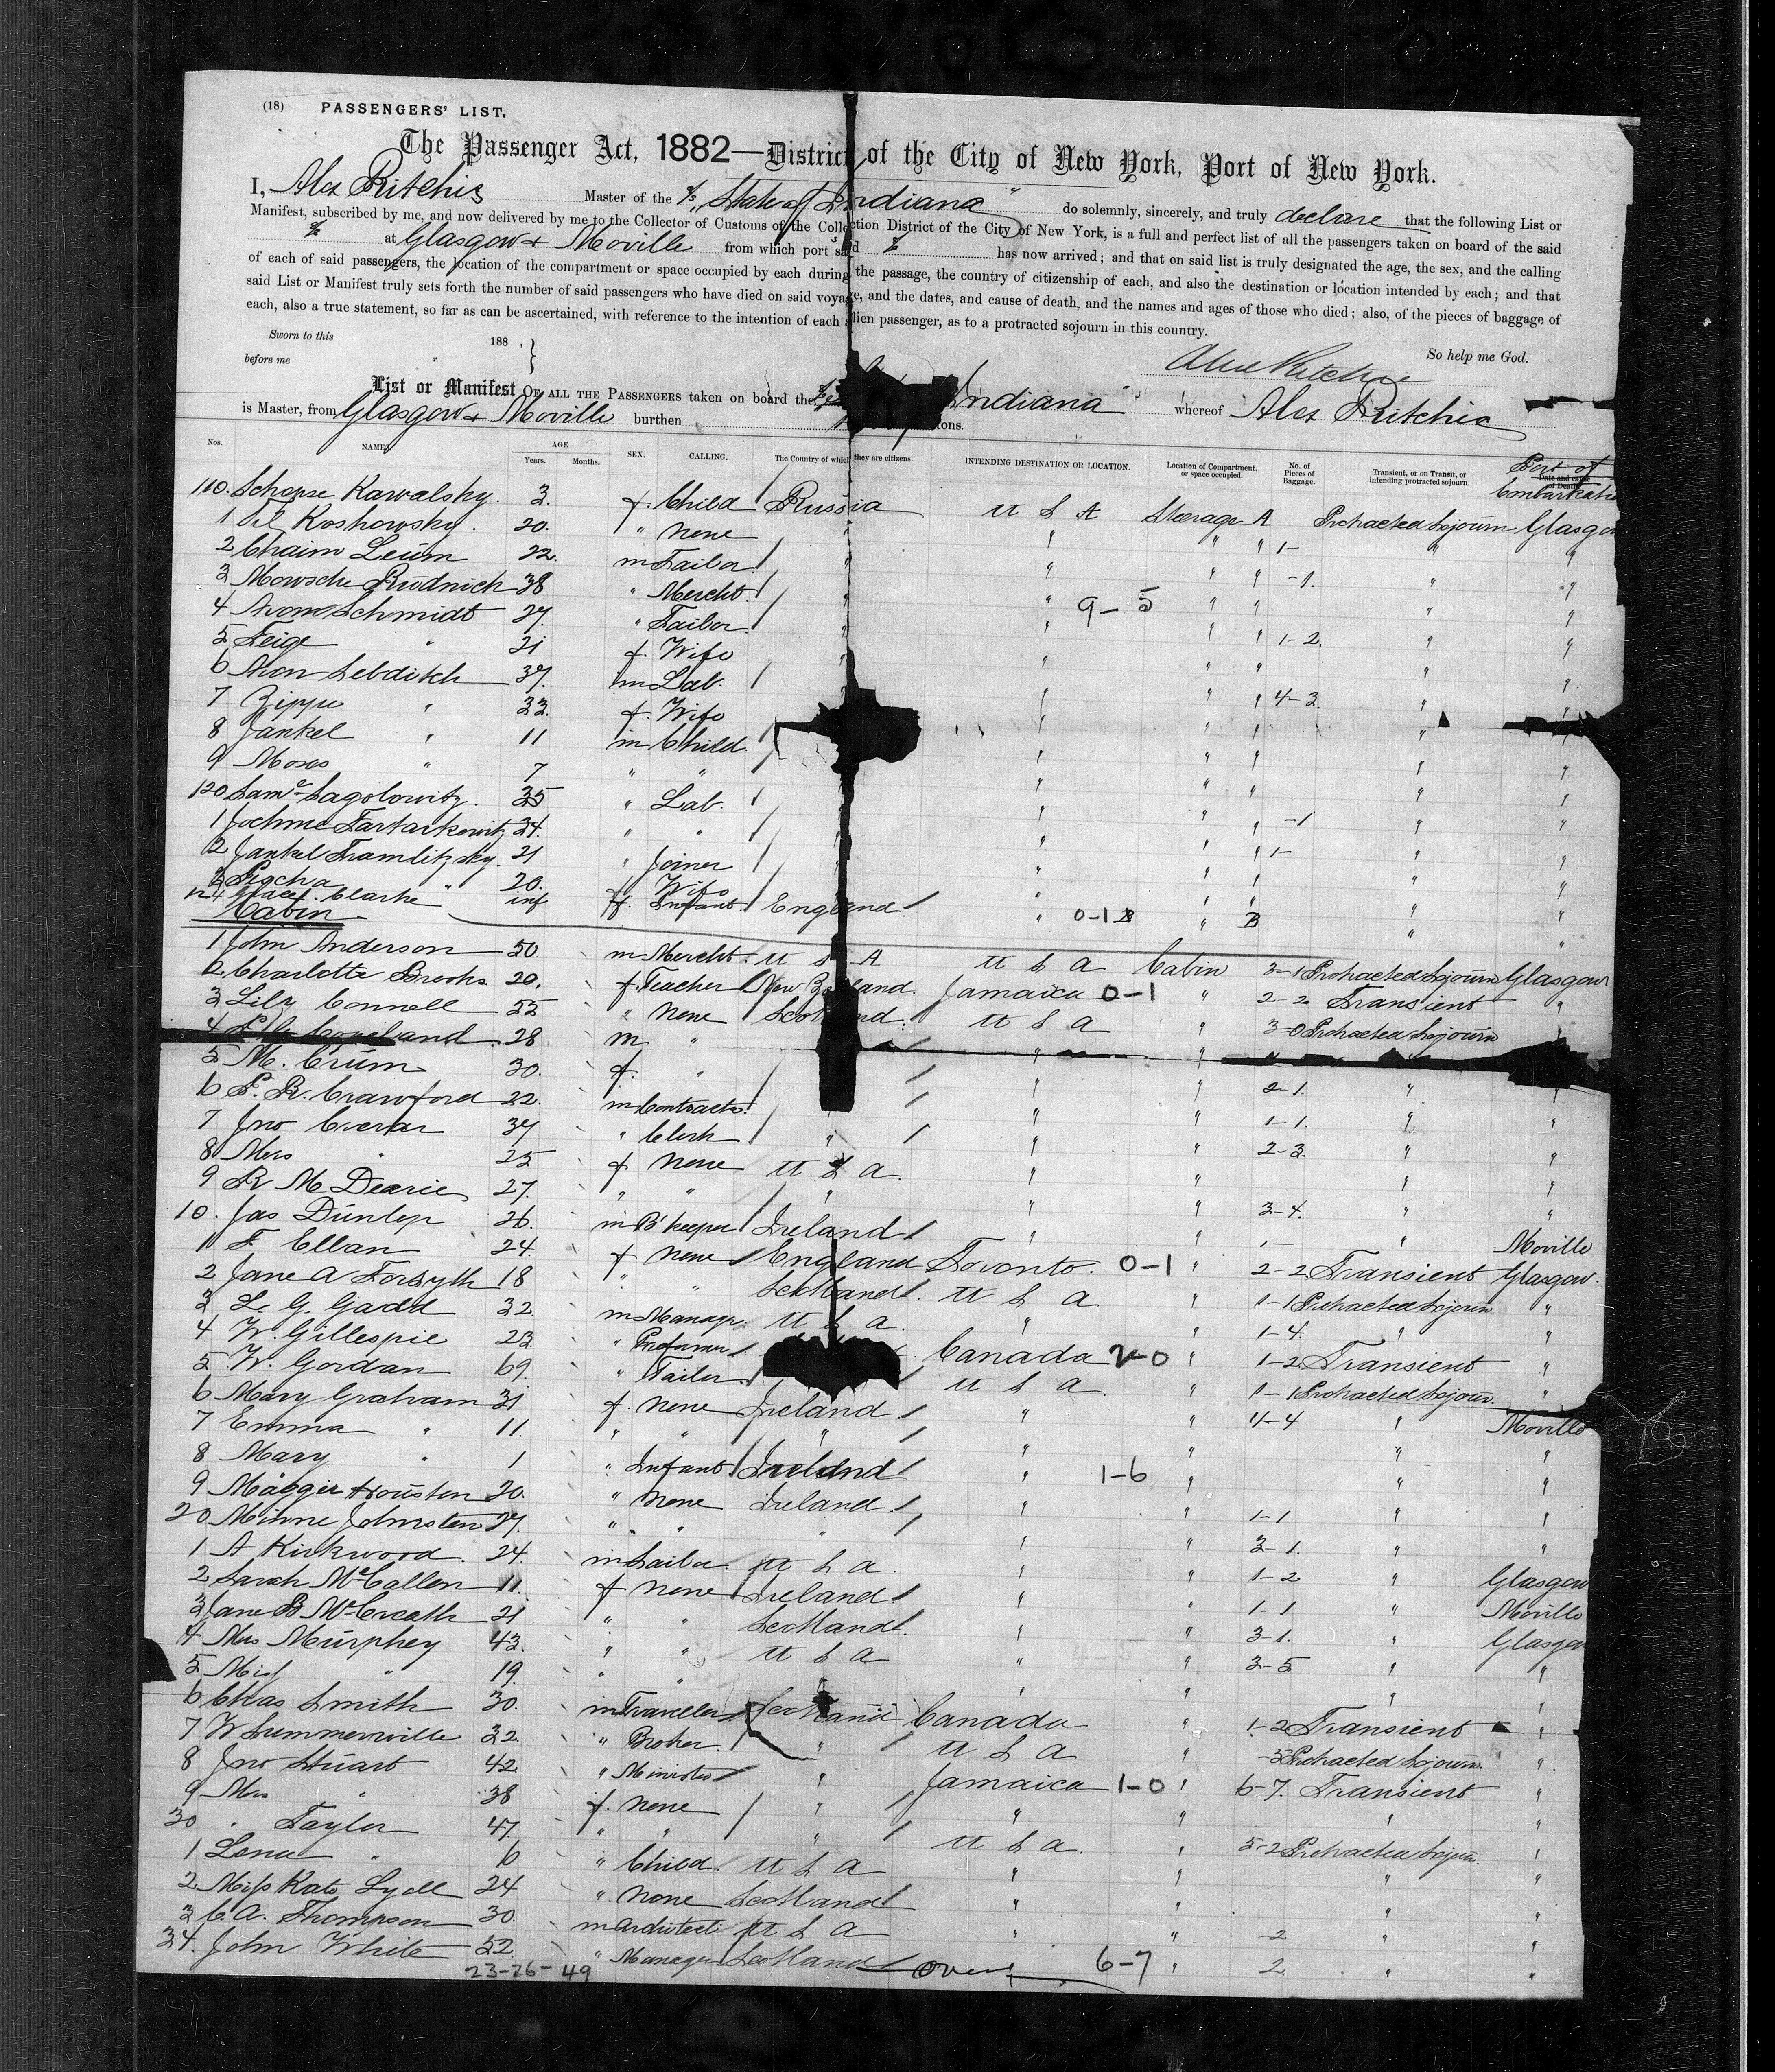 (18) PASSENGERS' LIST.
The Passenger Act, 1882—District of the City of New York, Port of New York.
I, Alex Ritchie Master of the S/s "State of Indiana" do solemnly, sincerely, and truly declare that the following List or
Manifest, subscribed by me, and now delivered by me to the Collector of Customs of the Collection District of the City of New York, is a full and perfect list of all the passengers taken on board of the said
at Glasgow & Moville from which port said has now arrived; and that on said list is truly designated the age, the sex, and the calling
of each of said passengers, the location of the compartment or space occupied by each during the passage, the country of citizenship of each, and also the destination or location intended by each; and that
said List or Manifest truly sets forth the number of said passengers who have died on said voyage, and the dates, and cause of death, and the names and ages of those who died; also, of the pieces of baggage of
each, also a true statement, so far as can be ascertained, with reference to the intention of each alien passenger, as to a protracted sojourn in this country.
Sworn to this 188 , So help me God.
before me Alex Ritchie
List or Manifest OF ALL THE PASSENGERS taken on board the Indiana" whereof Alex Ritchie
is Master, from Glasgow & Moville burthen tons.
Nos. NAMES AGE Years. Months. SEX. CALLING. The Country of which they are citizens INTENDING DESTINATION OR LOCATION. Location of Compartment, or space occupied. No. of Pieces of Baggage. Transient, or on Transit, or intending protracted sojourn. Date and cause of Death Port of Embarkation
110. Kawalsky. 3. f Child Russia U S A Steerage A Protracted Sojourn Glasgow
1 Koshowsky. 20. " None " " " " " "
2 Chaim Leum 22. m Tailor " " " " 1- " "
3 Mowsche Rudnick 38 " Mercht. " " " " -1. " "
4 Schmidt 27. " Tailor " " 9-5 " " " "
5 Feige " 21 f. Wife " " " " 1-2. " "
6 Aron Lebditch 37. m Lab. " " " " " "
7 Zippe " 33. f. Wife " " " 4-3. " "
8 Jankel " 11 m Child " " " " "
9 Moses " 7 " " " " " " "
120 Saml. Sagolowitz. 35 " Lab. " " " " "
1 Tartarkowitz 24. " " " " " -1 " "
2 Jankel Tramlitzsky. 21 " Joiner " " " 1- " "
3 " 20. " Wife " " " " "
4 Clarke inf f. Infant England. " 0-1 " B " "
Cabin
1 John Anderson 50 m Mercht. U S A U S A Cabin 3-1 Protracted Sojourn Glasgow
2 Charlotte Brooks 20. f Teacher New Zealand. Jamaica 0-1 " 2-2 Transient "
3 Lily Connell 22 " None Scotland. U S A " 3-0 Protracted Sojourn
4 Copeland. 28 m " " " "
5 M. Crum 30. f. " " " 2-1. " "
6 P. R. Crawford 22. m Contractr. " " 1-1. " "
7 Jno 37 " Clerk " " " 2-3. " "
8 Mrs " 25 f None U S A. " " " "
9 R M Dearie 27. " " " " " 3-4. " "
10. Jas Dunlop 26. m B'keeper Ireland " " 1- " Moville
1 F Ellan 24. f None England Toronto. 0-1 " 2-2 Transient Glasgow.
2 Jane A Forsyth 18 " " Scotland. U S A " 1-1 Protracted Sojourn "
3 L. G. Gadd 32. m Manager. U S A. " " 1-4. " "
4 W. Gillespie 23. " Canada 2-0 " 1-2 Transient "
5 W. Gordan 69. " Tailor. U S A. " 1-1 Protracted Sojour. "
6 Mary Graham 31 f. None Ireland " " 4-4 " Moville
7 Emma " 11. " " " " " " "
8 Mary " 1 " Infant Ireland " 1-6 " " "
9 Maggie Houston 20. " None Ireland. " " 1-1 " "
20 Minne Johnston 27. " " " " " 3-1. " "
1 A Kirkwood. 24. m Sailor. U S A. " " 1-2 " Glasgow
2 Sarah McCallen 11. f None Ireland " " 1-1 " Moville
3 Jane B McCreath 21 " " Scotland. " " 3-1. " Glasgow
4 Mrs Murphey 43. " " U S A " " 3-5 " "
5 Miss " 19. " " " " " "
6 Chas Smith 30. m Traveller Scotland Canada " 1-2 Transient "
7 W Summerville 32. " Broker. " U S A " -3 Protracted Sojourn. "
8 Jno Stuart 42 " Minister " Jamaica 1-0 " 6-7. Transient "
9 Mrs " 38 f. None " " " " "
30 " Taylor 47. " " " U S A. " 5-2 Protracted Sojour. "
1 Lena " 6 " Child. U S A " " " "
2 Miss Kate Lyall 24 " None Scotland " " " "
3 C. A. Thompson 30. m Architect U S A " " -2 " "
34. John White 52. " Manager Scotland over 6-7 " 2 " "
23-26-49